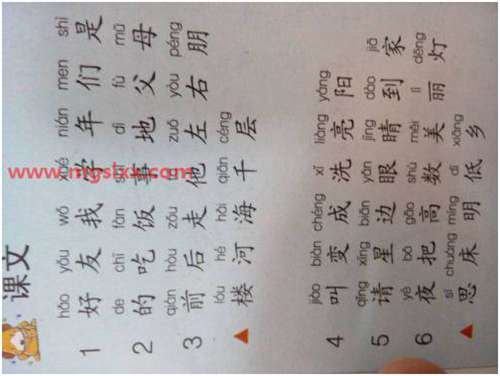 课文
hǎo yǒu wǒ xué nián men shì
1 好 友 我 学 年 们 是
de chī fàn dì fù mǔ
2 的 吃 饭 事 地 父 母
qián hòu zǒu zuǒ yòu péng
3 前 后 走 他 左 右 朋
lóu hé hǎi qiān céng
▲ 楼 河 海 千 层
jiào biàn chéng xǐ liàng yáng
4 叫 变 成 洗 亮 阳
qǐng xīng biān yǎn jīng dào jiā
5 请 星 边 眼 睛 到 家
yè bǎ gāo shǔ měi lì dēng
6 夜 把 高 数 美 丽 灯
sī chuáng míng dī xiāng
▲ 思 床 明 低 乡